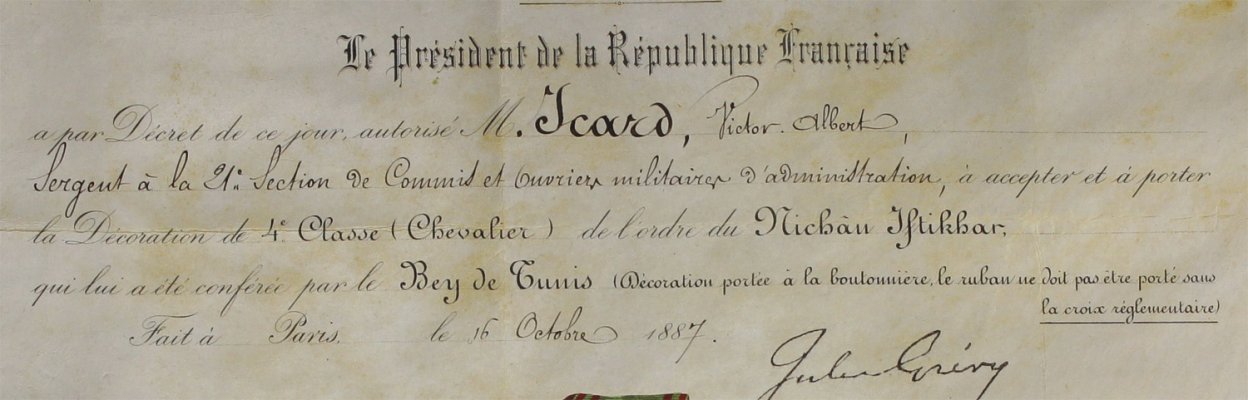 Le Président de la République Française
a par Décret de ce jour, autorisé M. Icard, Victor Albert,
Sergent à la 21e Section de Commis et Ouvriers militaires d'administration, à accepter et à porter
la Décoration de 4e Classe (Chevalier) de l'ordre du Nichân Iftikhar,
qui lui a été conférée par le Bey de Tunis (Décoration portée à la boutonnière, le ruban ne doit pas être porté sans
la croix réglementaire)
Fait à Paris, le 16 Octobre 1887.
Jules Grévy